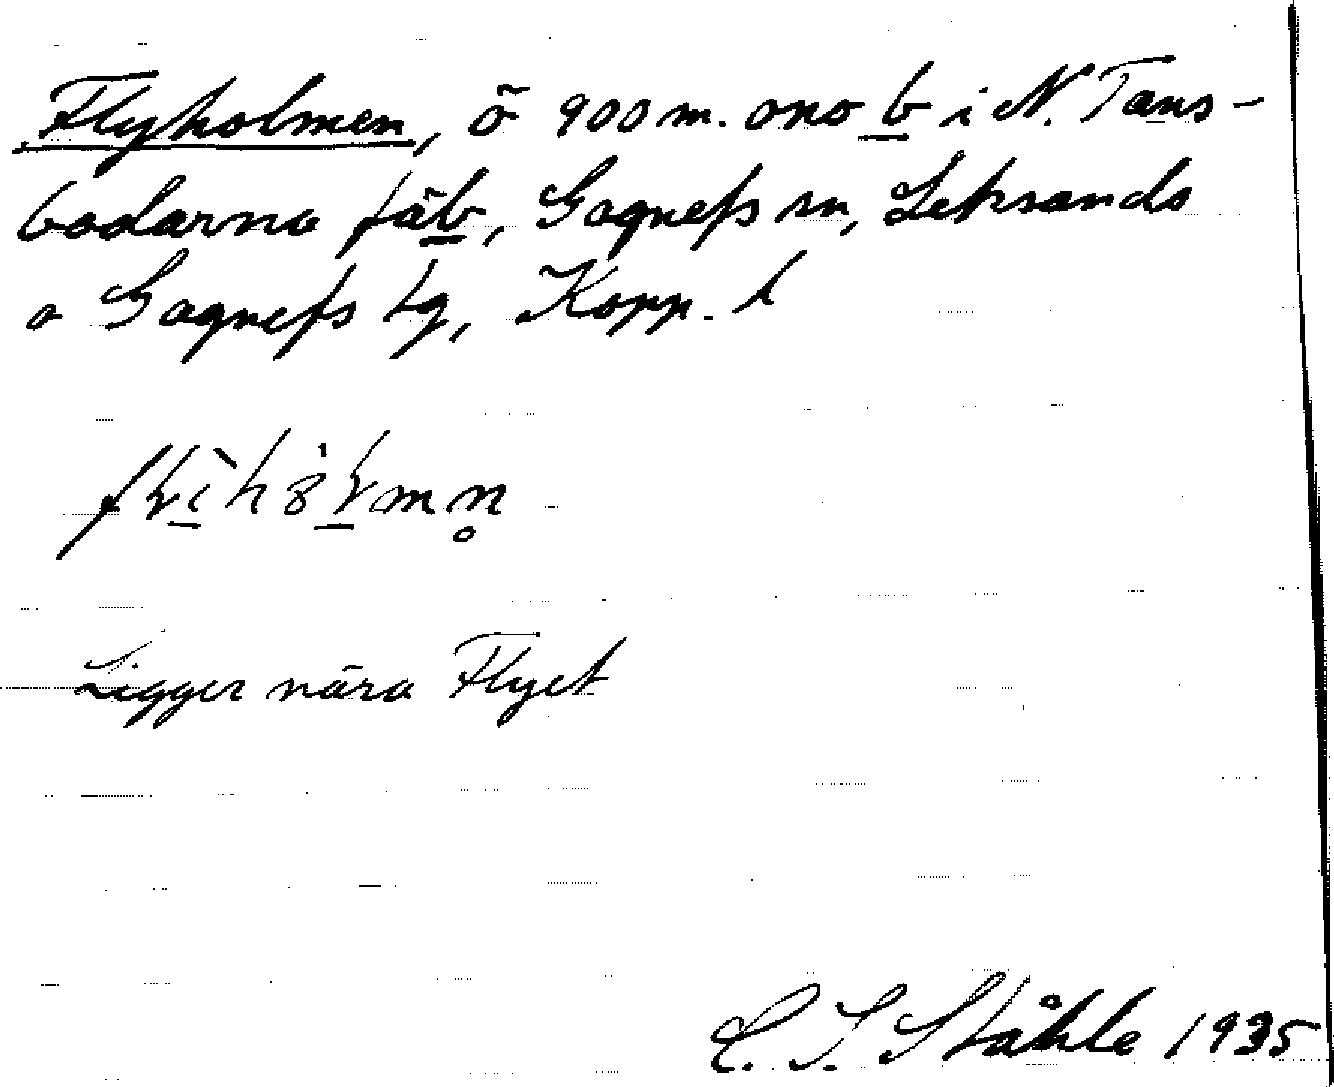 Flyholmen, ö 900 m. ono b i N. Tans-
bodarna fäb, Gagnefs sn, Leksands
o Gagnefs tg, Kopp. l
Ligger nära Flyet
C. I. Ståhle 1935